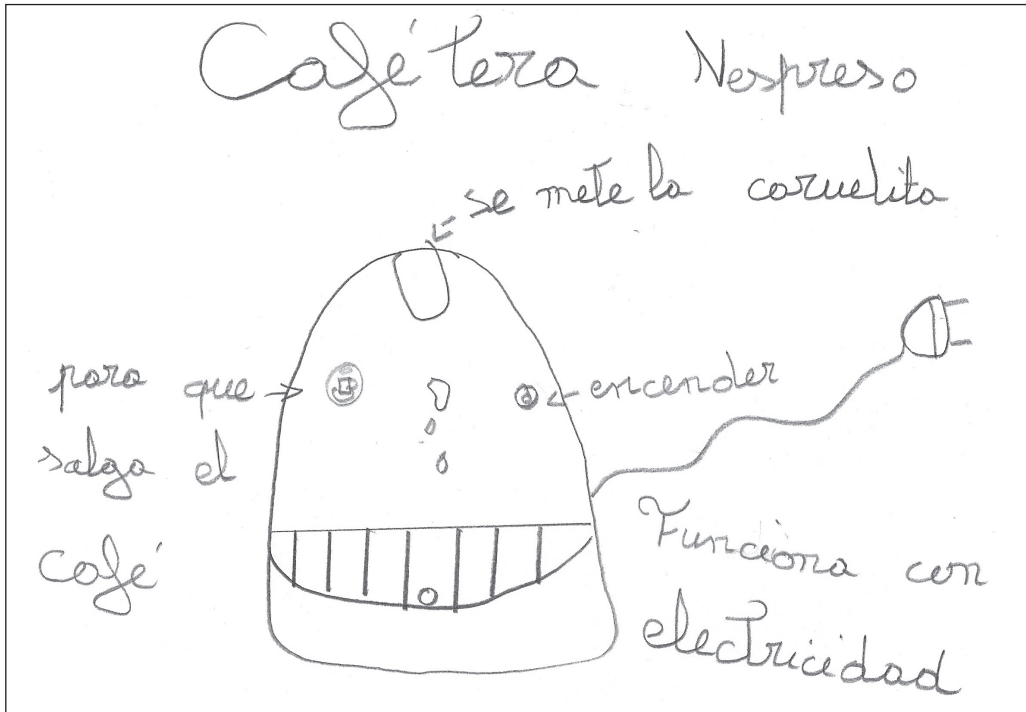 Cafétera Nespreso
se mete la caruelita
para que
salga el
café
encender
Funciona con
electricidad